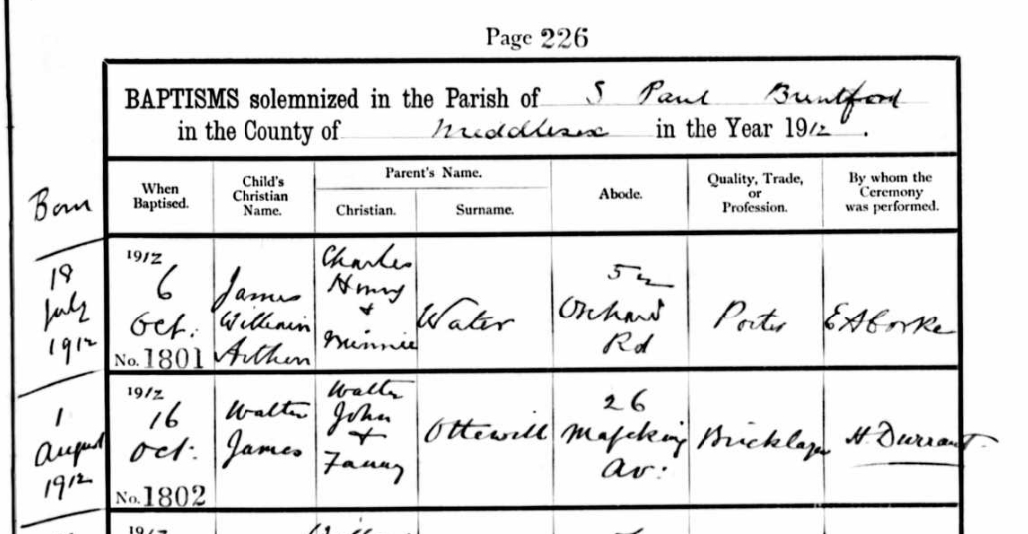 Page 226
BAPTISMS solemnized in the Parish of S Paul Brentford
in the County of Middlesex in the Year 1912.
Born
When Baptised.
Child's Christian Name.
Parent's Name.
Christian.
Surname.
Abode.
Quality, Trade, or Profession.
By whom the Ceremony was performed.
18
July
1912
1912
6
Oct:
No. 1801
James
William
Arthur
Charles
Henry
+
Minnie
Water
52
Orchard
Rd
Porter
E A Corke
1
August
1912
1912
16
Oct:
No. 1802
Walter
James
Walter
John
+
Fanny
Ottewill
26
Mafeking
Av:
Bricklayer
H. Durrant